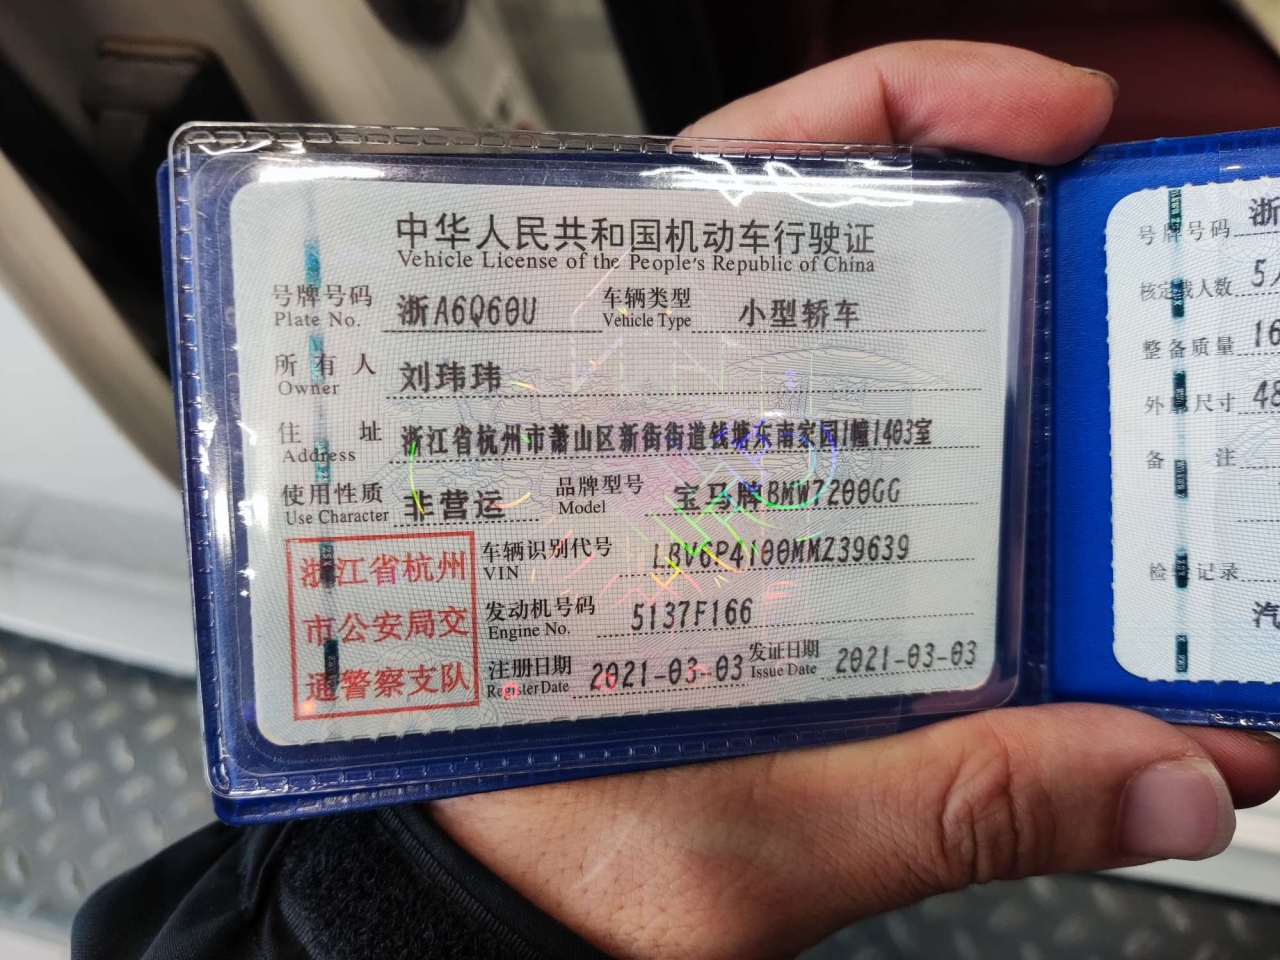 中华人民共和国机动车行驶证
Vehicle License of the People's Republic of China
号牌号码 浙A6Q60U 车辆类型 小型轿车
Plate No. Vehicle Type
所有人 刘玮玮
Owner
住址 浙江省杭州市萧山区新街街道钱塘东南家园1幢1403室
Address
使用性质 非营运 品牌型号 宝马牌BMW7200GG
Use Character Model
车辆识别代号 LBV6P4100MMZ39639
VIN
发动机号码 5137F166
Engine No.
注册日期 2021-03-03 发证日期 2021-03-03
Register Date Issue Date
浙江省杭州
市公安局交
通警察支队
号牌号码 浙
核定载人数 5人
整备质量 16
外廓尺寸 48
备注
检验记录
汽